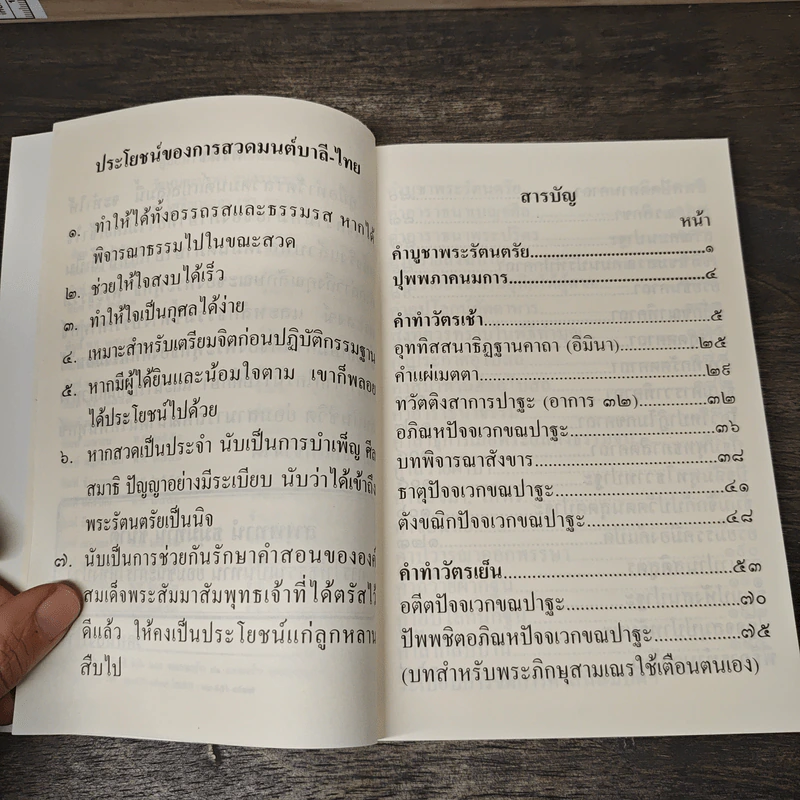 ประโยชน์ของการสวดมนต์บาลี-ไทย
๑. ทำให้ได้ทั้งอรรถรสและธรรมรส หากได้
พิจารณาธรรมไปในขณะสวด
๒. ช่วยให้ใจสงบได้เร็ว
๓. ทำให้ใจเป็นกุศลได้ง่าย
๔. เหมาะสำหรับเตรียมจิตก่อนปฏิบัติกรรมฐาน
๕. หากมีผู้ได้ยินและน้อมใจตาม เขาก็พลอย
ได้ประโยชน์ไปด้วย
๖. หากสวดเป็นประจำ นับเป็นการบำเพ็ญ ศีล
สมาธิ ปัญญาอย่างมีระเบียบ นับว่าได้เข้าถึง
พระรัตนตรัยเป็นนิจ
๗. นับเป็นการช่วยกันรักษาคำสอนขององค์
สมเด็จพระสัมมาสัมพุทธเจ้าที่ได้ตรัสไว้
ดีแล้ว ให้คงเป็นประโยชน์แก่ลูกหลาน
สืบไป
สารบัญ
หน้า
คำบูชาพระรัตนตรัย..............................๑
ปุพพภาคนมการ..............................๔
คำทำวัตรเช้า..............................๕
อุททิสสนาธิฏฐานคาถา (อิมินา)....................๒๕
คำแผ่เมตตา..............................๒๙
ทวัตติงสาการปาฐะ (อาการ ๓๒)....................๓๒
อภิณหปัจจเวกขณปาฐะ..............................๓๖
บทพิจารณาสังขาร..............................๓๘
ธาตุปัจจเวกขณปาฐะ..............................๔๑
ตังขณิกปัจจเวกขณปาฐะ..............................๔๘
คำทำวัตรเย็น..............................๕๓
อตีตปัจจเวกขณปาฐะ..............................๗๐
ปัพพชิตอภิณหปัจจเวกขณปาฐะ....................๗๕
(บทสำหรับพระภิกษุสามเณรใช้เตือนตนเอง)